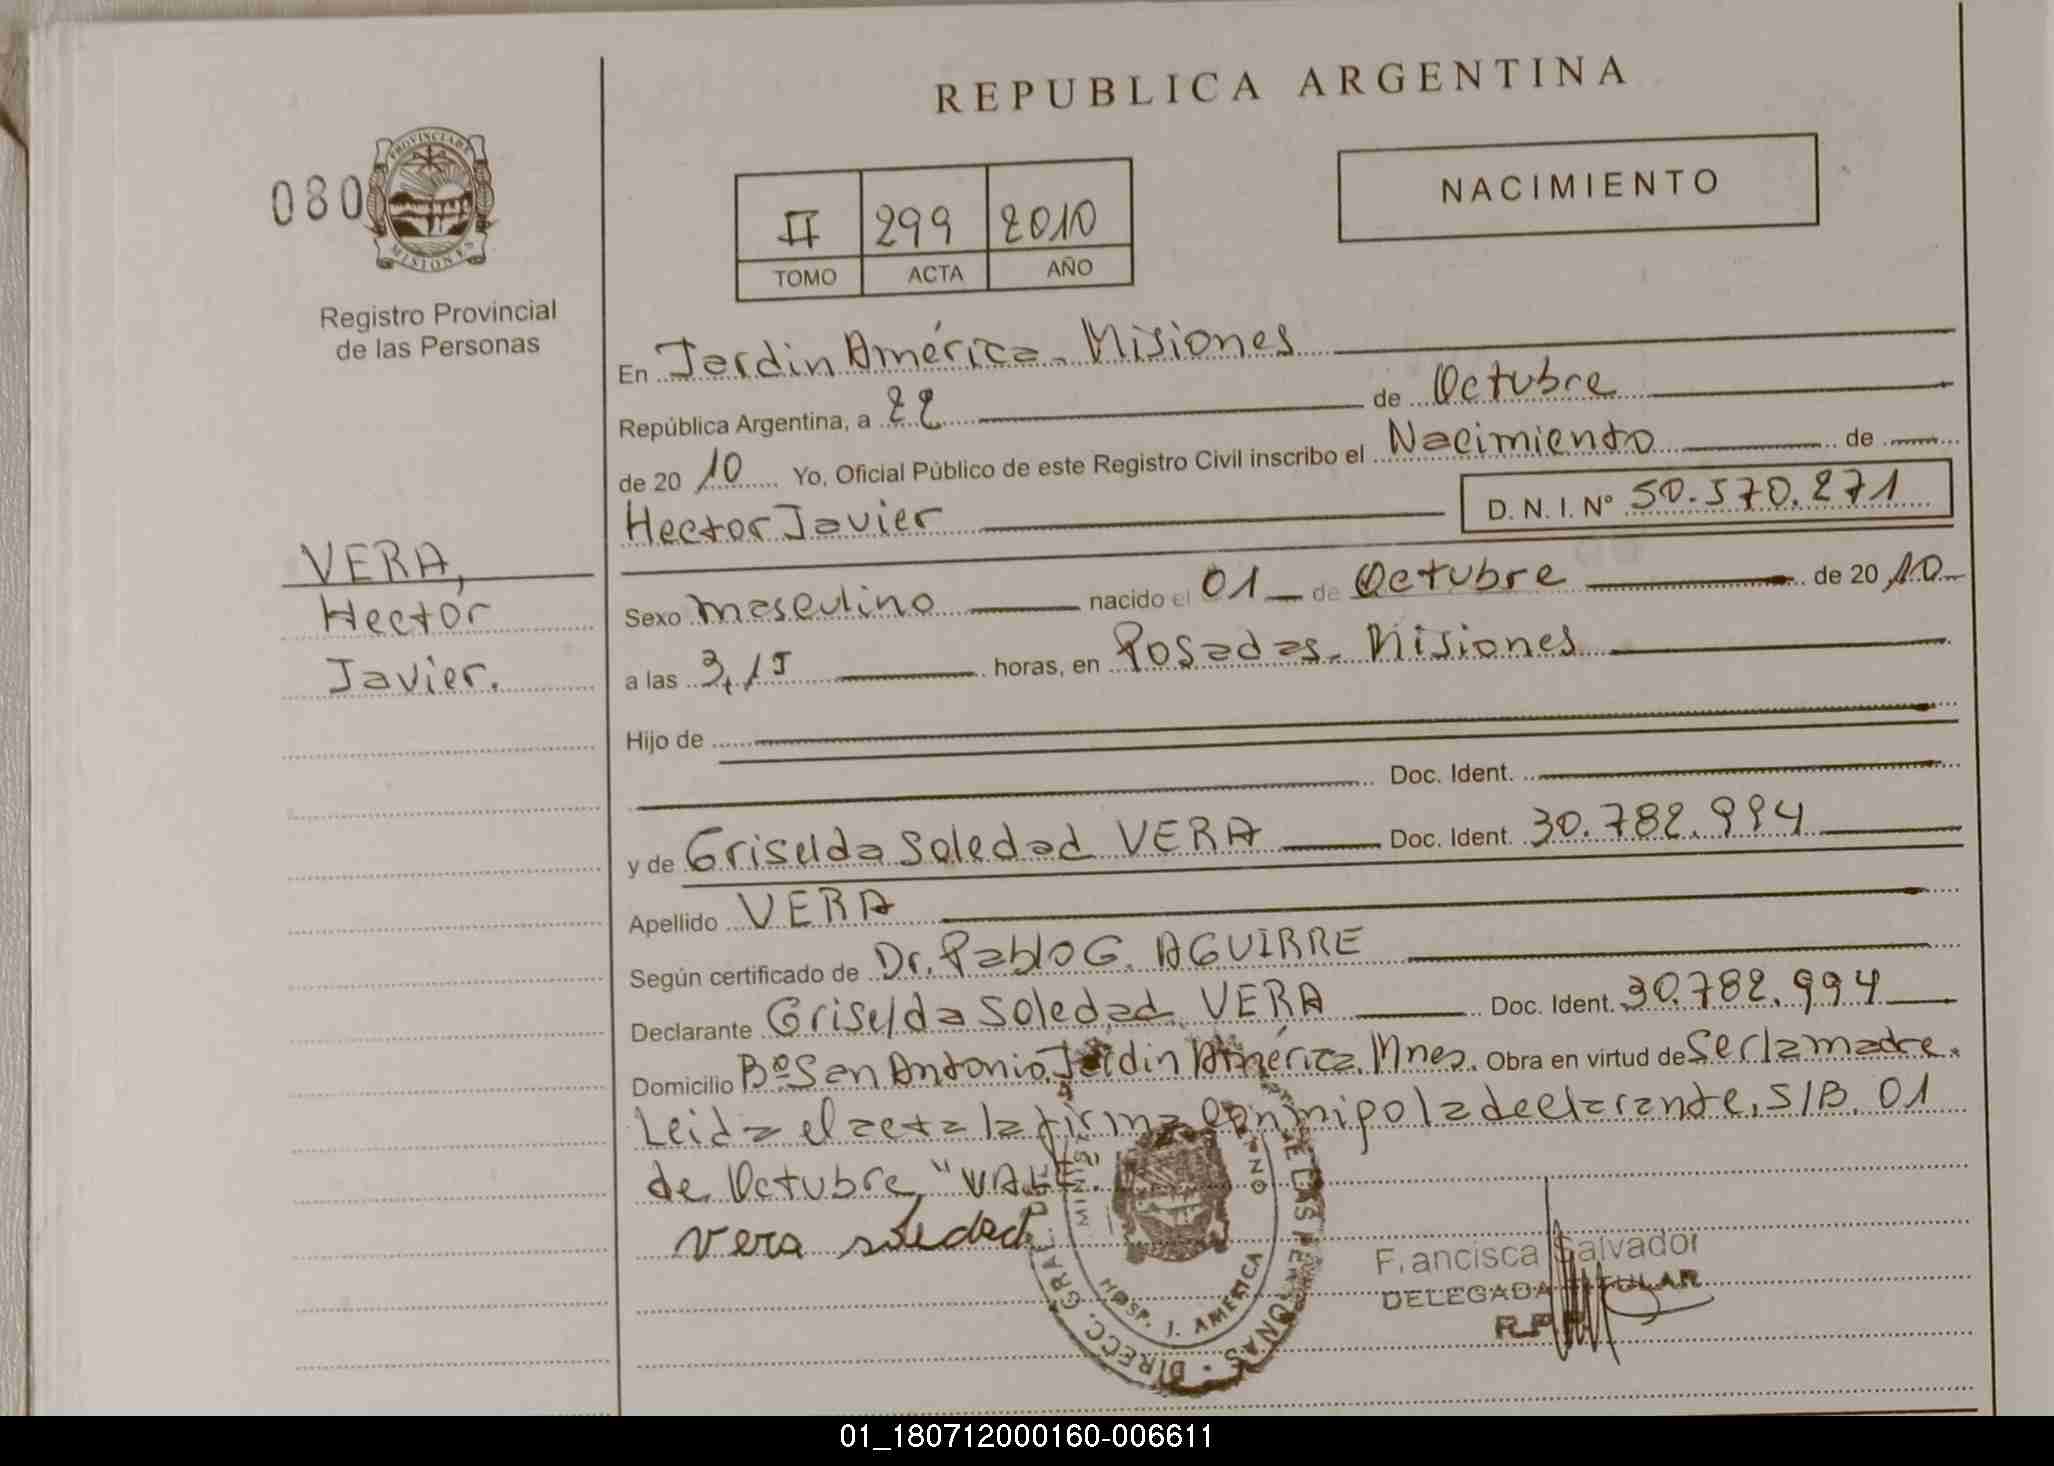 REPUBLICA ARGENTINA
080
PROVINCIA DE
MISIONES
Registro Provincial
de las Personas
II 299 2010
TOMO ACTA AÑO
NACIMIENTO
VERA,
Hector
Javier.
En Jardin América - Misiones
República Argentina, a 22 de Octubre
de 2010 Yo, Oficial Público de este Registro Civil inscribo el Nacimiento de
Hector Javier D. N. I. Nº 50.570.271
Sexo masculino nacido el 01 de Octubre de 2010
a las 3,15 horas, en Posadas - Misiones
Hijo de
Doc. Ident.
y de Griselda Soledad VERA Doc. Ident. 30.782.994
Apellido VERA
Según certificado de Dr. Pablo G. AGUIRRE
Declarante Griselda Soledad VERA Doc. Ident. 30.782.994
Domicilio Bº San Antonio, Jardin América, Mnes. Obra en virtud de Ser la madre.
Leida el acta la firma conmigo la declarante, S/B. 01
de Octubre, "VALE".
vera soledad
DIRECC. GRAL. DE LAS PERSONAS
HOSP. J. AMERICA
Francisca Salvador
DELEGADA TITULAR
R.P.P.
01_180712000160-006611